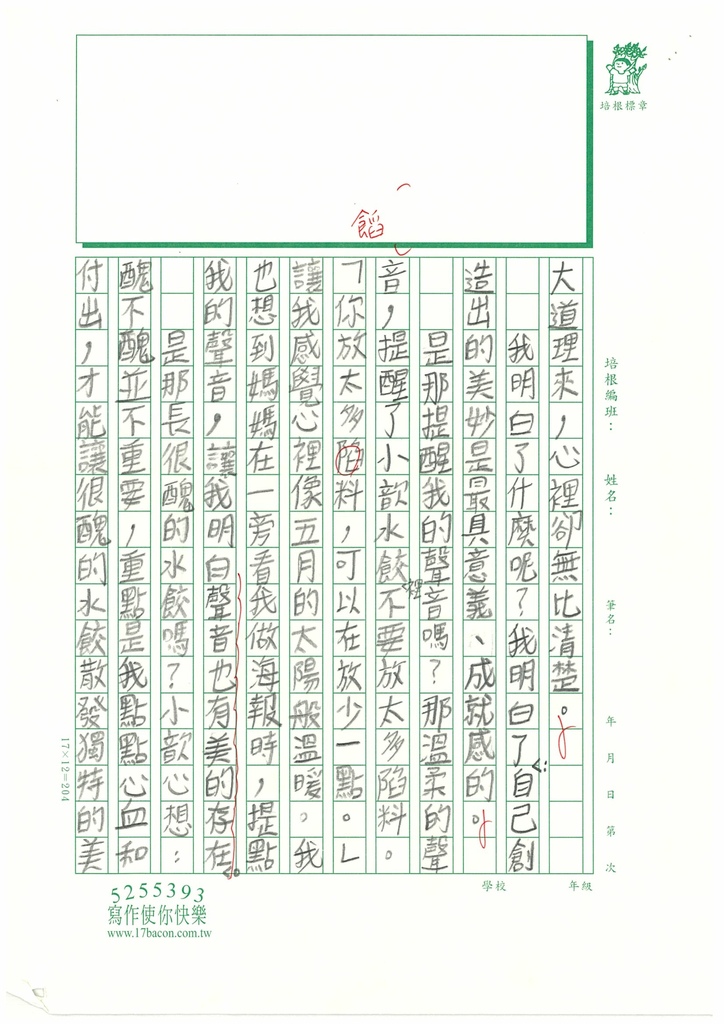 培根標章
餡
培根編班： 姓名： 筆名： 年 月 日 第 次
大道理來，心裡卻無比清楚。
我明白了什麼呢？我明白了自己創
造出的美妙是最具意義、成就感的。
是那提醒我的聲音嗎？那溫柔的聲
音，提醒了小歆水餃裡不要放太多陷料。
「你放太多陷料，可以在放少一點。」
讓我感覺心裡像五月的太陽般溫暖。我
也想到媽媽在一旁看我做海報時，提點
我的聲音，讓我明白聲音也有美的存在。
是那長很醜的水餃嗎？小歆心想：
醜不醜並不重要，重點是我點點心血和
付出，才能讓很醜的水餃散發獨特的美
17×12=204
學校 年級
5255393
寫作使你快樂
www.17bacon.com.tw